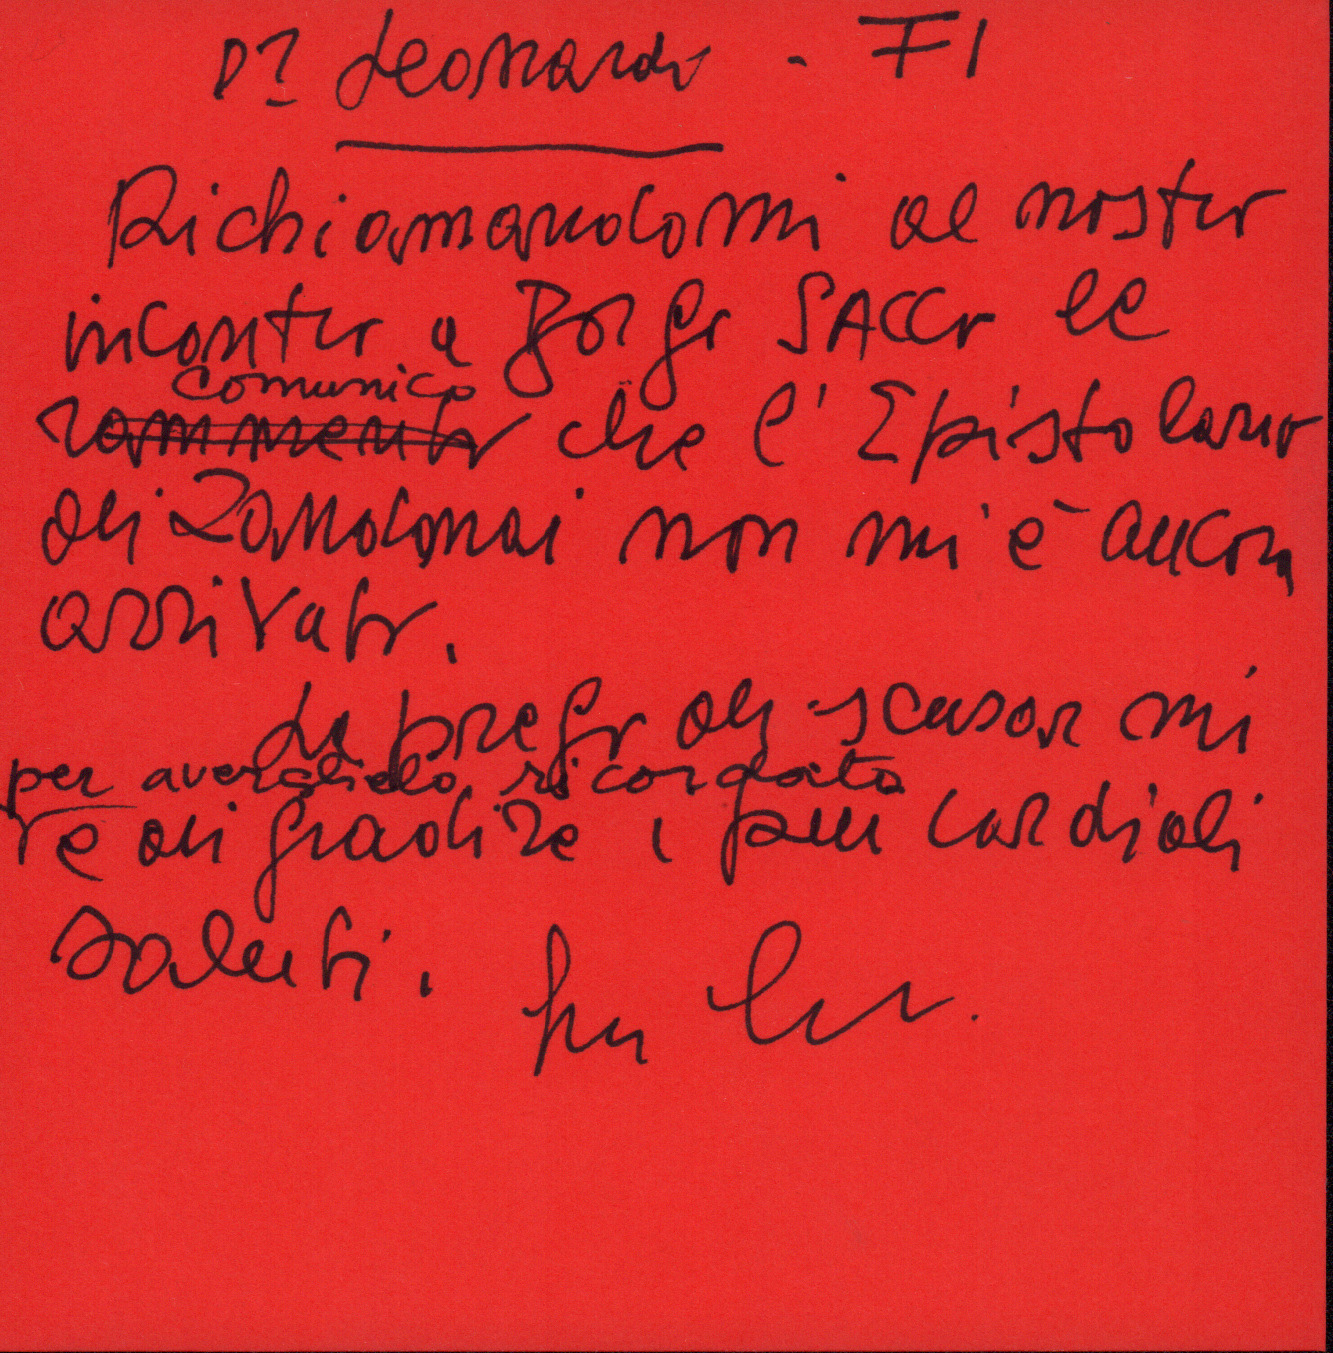 Dr Leonardi - FI
Richiamandomi al nostro
incontro a Borgo SACCO le
comunico
rammento che l'Epistolario
di Zandonai non mi è ancora
arrivato.
La prego di scusarmi
per averglielo ricordato
e di gradire i più cordiali
saluti.